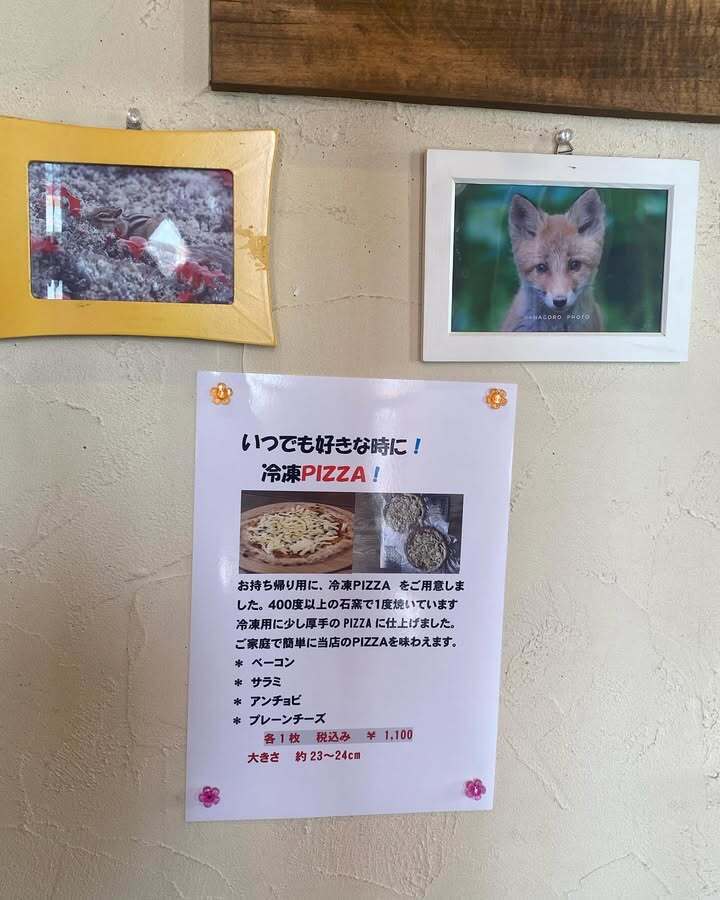 HANAGORO PHOTO
いつでも好きな時に！
冷凍PIZZA！
お持ち帰り用に、冷凍PIZZA をご用意しま
した。400度以上の石窯で1度焼いています
冷凍用に少し厚手のPIZZAに仕上げました。
ご家庭で簡単に当店のPIZZAを味わえます。
＊ ベーコン
＊ サラミ
＊ アンチョビ
＊ プレーンチーズ
各1枚 税込み ￥ 1,100
大きさ 約23～24cm